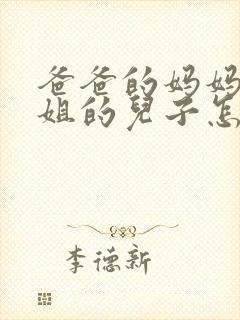 爸爸的妈妈
姐的兒子怎
李德新